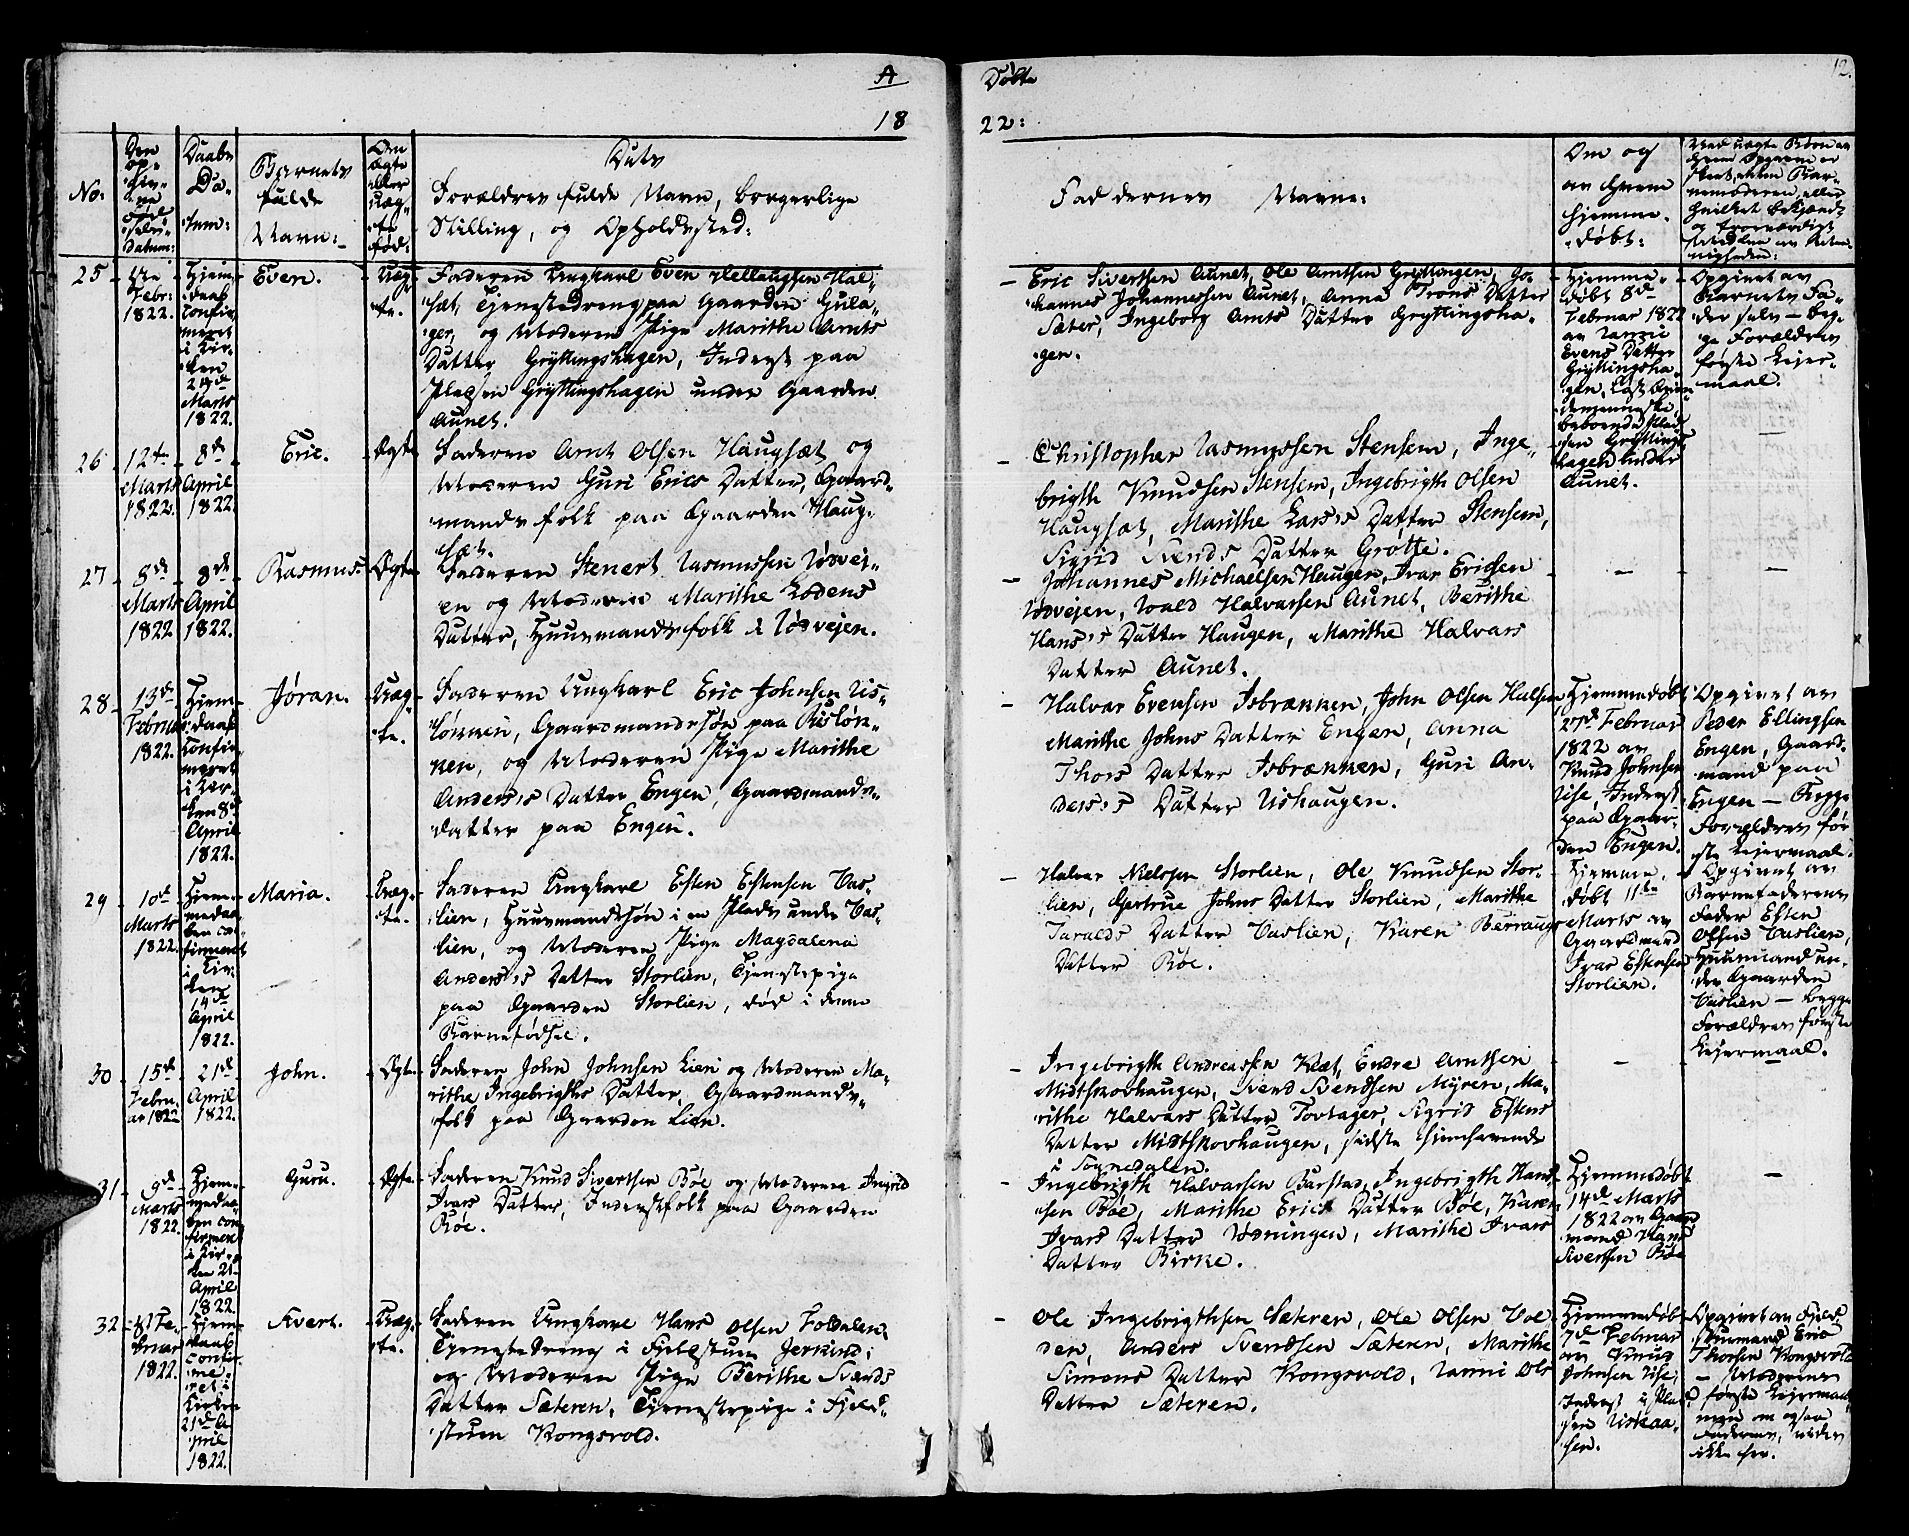 A
Døbte
12.
18
22:
No.
Daabs
Da-
tum:
Barnets
fulde
Navn:
Om
Ægte
eller
Uæg-
te
fød:
Dets
Forældres fulde Navn, borgerlige
Stilling, og Opholdssted:
Faddernes Navne:
Om og
av hvem
hjemme-
døbt:
25
Febr:
1822.
Hjem-
daab
confir-
meret
i Kir-
ken
24de
Marts
1822.
Even.
Uæg-
te.
Faderen Ungkarl Even Hellaugsen Hal-
sæt, Tjenstedreng paa Gaarden Gula-
ger, og Moderen Pige Marithe Arnts
Datter Gryttingshagen, Inderst paa
Pladsen Gryttingshagen under Gaarden
Aunet.
Eric Sivertsen Aunet, Ole Arntsen Gryttingen, Jo-
hannes Johannessen Aunet, Anna Trons Datter
Sæter, Ingeborg Arnts Datter Gryttingsha-
gen.
Hjemme-
døbt 8de
Februar 1822
av
Evens Datter
Gryttingsha-
gen,
Aunet.
Opgivet av
Barnets Fa-
der selv – Beg-
ge Forældres
første Leier-
maal.
26
12te
Marts
1822.
8de
April
1822.
Eric.
Ægte
Faderen Arnt Olsen Haugsæt og
Moderen Guri Erics Datter, Gaard-
mandsfolk paa Gaarden Haug-
sæt.
Christopher Rasmussen Stensem, Inge-
brigth Knudsen Stensem, Ingebrigth Olsen
Haugsæt, Marithe Lars's Datter Stensem,
Sigrid Svends Datter Grøtte.
27
8de
Marts
1822
8de
April
1822.
Rasmus.
Ægte
Faderen Stenert Rasmussen Røsvej-
en og Moderen Marithe Lodens
Datter, Huusmandsfolk i Røsvejen.
Johannes Michaelsen Haugen, Ivar Ericsen
Røsvejen, Roald Halvarsen Aunet, Berithe
Hans's Datter Haugen, Marithe Halvars
Datter Aunet.
28
13de
Februar
1822.
Hjem-
daab
confir-
meret
i Kir-
ken 8de
April
1822.
Jøran.
Uæg-
te.
Faderen Ungkarl Eric Johnsen Ris-
lønnen, Gaardmandssøn paa Risløn-
nen, og Moderen Pige Marithe
Anders's Datter Engen, Gaardmands-
datter paa Engen.
Halvar Evensen Isbrækken, John Olsen Halsen
Marithe Johns Datter Engen, Anna
Thors Datter Isbrækken, Guri An-
ders's Datter Rishaugen.
Hjemmedøbt
27de Februar
1822 av
Knud Johnsen
Rise, Inderst
paa Gaar-
den Engen.
Opgivet av
Peder Ellingsen
Engen, Gaard-
mand paa
Engen – Begge
Forældres før-
ste Leiermaal.
29
10de
Marts
1822.
Hjem-
medaa-
ben con-
firmeret
i Kir-
ken
14de
April
1822.
Maria.
Uæg-
te.
Faderen Ungkarl Esten Estensen Vas-
lien, Huusmandssøn i en Plads under Vas-
lien, og Moderen Pige Magdalena
Anders's Datter Storlien, Tjenestepige
paa Gaarden Storlien, død i denne
Barnefødsel.
Halvar Nielsen Storlien, Ole Knudsen Stor-
lien, Gertrue Johns Datter Storlien, Marithe
Taralds Datter Vaslien, Karen Berraugs
Datter Bøe.
Hjemme-
døbt 11te
Marts av
Gaardmand
Ivar Estensen
Storlien.
Opgivet av
Barnefaderens
Fader Esten
Olsen Vaslien,
Huusmand un-
der Gaarden
Vaslien – begge
Forældres første
Leiermaal.
30
15de
Febru-
ar 1822
21de
April
1822.
John.
Ægte
Faderen John Johnsen Lien og Moderen Ma-
rithe Ingebrigths Datter, Gaardmands-
folk paa Gaarden Lien.
Ingebrigth Andreassen Klæt, Endre Arntsen
Midtskovhaugen, Svend Svendsen Myren, Ma-
rithe Halvars Datter Tovtager, Sigrid Estens
Datter Midtskovhaugen, sidste hjemhørende
i Sognedalen.
31
9de
Marts
1822.
Hjem-
medaa-
ben con-
firmeret
i Kir-
ken 21-
April
1822.
Guru.
Ægte
Faderen Knud Sivertsen Bøe og Moderen Ingrid
Ivars Datter, Inderstfolk paa Gaarden
Bøe.
Ingebrigth Halvarsen Barstad, Ingebrigth Hans-
sen Bøe, Marithe Erics Datter Bøe, Karen
Ivars Datter Røsningen, Marithe Ivars
Datter Birke.
Hjemmedøbt
14de Marts
1822 av Gaard-
mand Hans
Sivertsen Bøe
32
1822.
Hjem-
daab
confir-
me-
ret i
Kirken
21de A-
pril
1822.
Sivert.
Uæg-
te.
Faderen Ungkarl Hans Olsen Foldalen,
Tjenestedreng i Fjeldstuen Jerkind;
og Moderen Pige Berithe Svends
Datter Sæteren, Tjenestepige i Fjeld-
stuen Kongsvold.
Ole Ingebrigthsen Sæteren, Ole Olsen Vol-
den, Anders Svendsen Sæteren, Marithe
Simons Datter Kongsvold, Ranni Ols
Datter Sæteren.
Hjemmedøbt
7de Februar
av Knud
Johnsen Rise,
Inderst i Pla-
sen Riskaa-
sen.
Opgivet av Fjeld-
stuemand Eric
Thorsen Kongsvold
– Moderens
første Leiermaal,
men om ogsaa
Faderens, vides
ikke her.